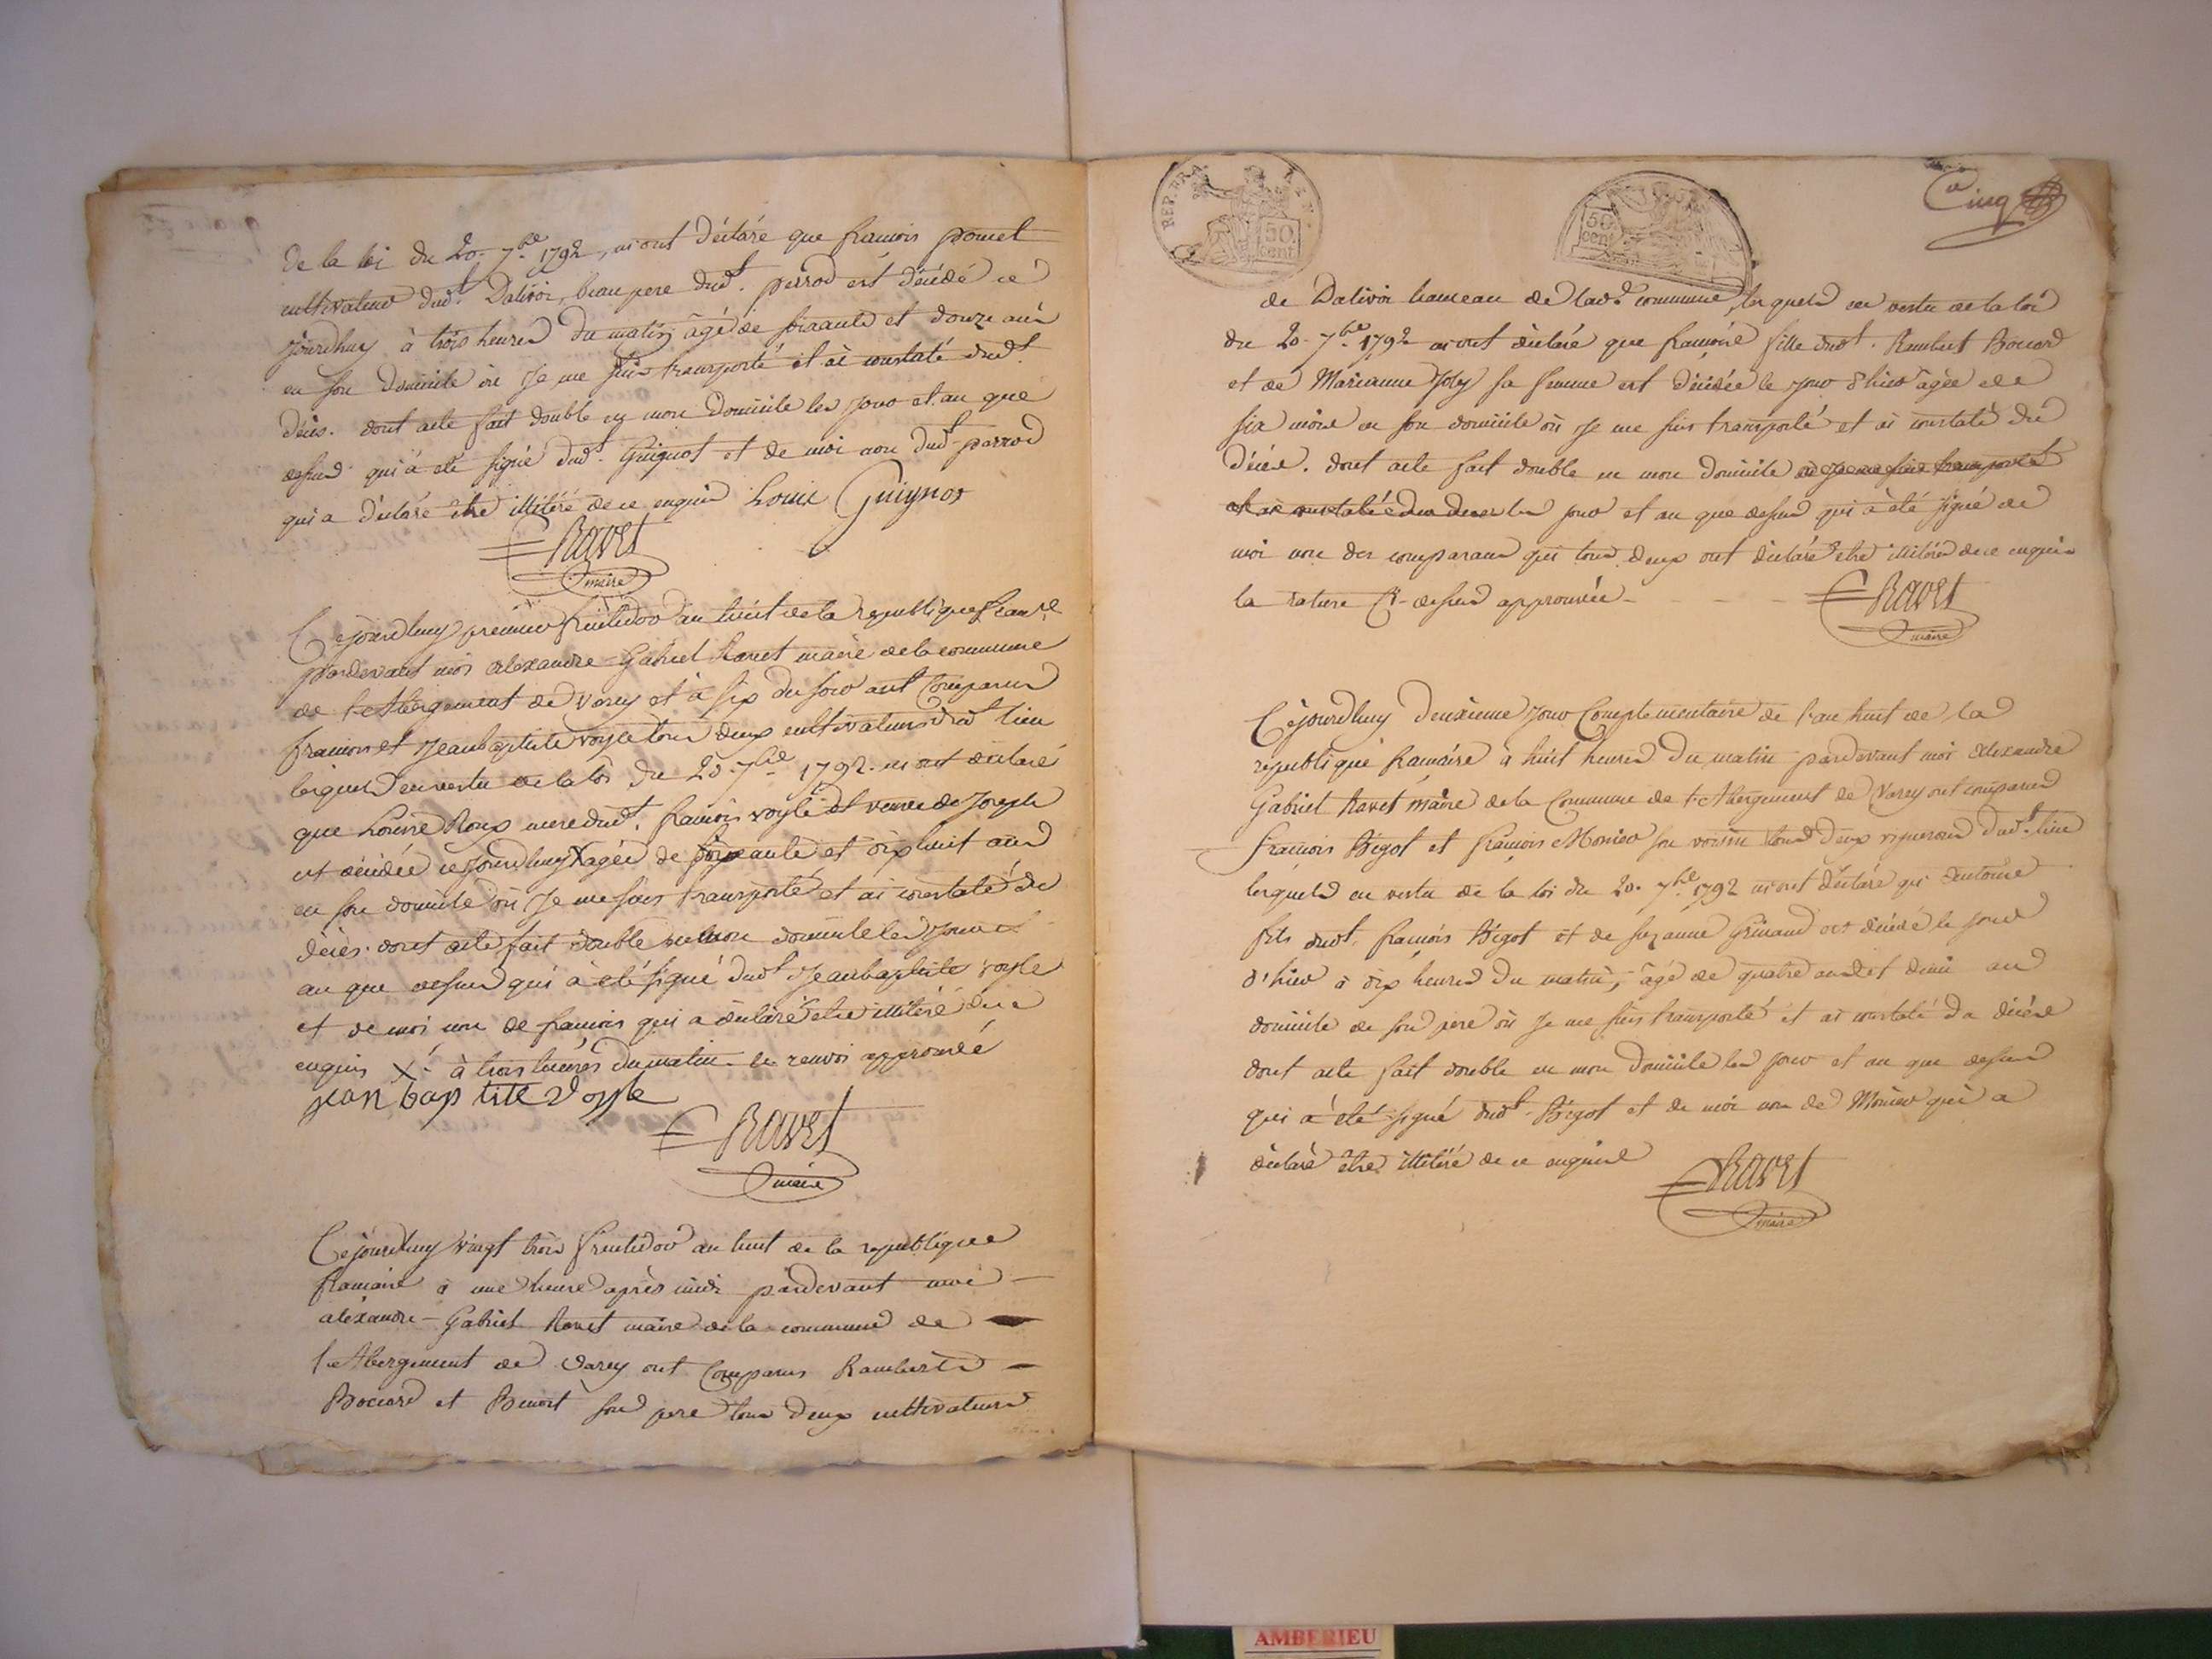 de la loi du 20. 7bre 1792, m'ont déclaré que francois poncet
cultivateur dudt. Dalivoi, beau pere dudt. perrod est décédé ce
jourdhuy à trois heures du matin, âgé de soixante et douze ans
en son domicile où Je me suis transporté et ai constaté dudt
décès. dont acte fait double en mon domicile les jour et an que
dessus qui à eté signé dudt. Guignot et de moi non dudt perrod
qui a déclaré être illitéré de ce enquis Louis Guignot
Ravet
maire
Cejourdhuy premier fruictidor an huit de la republique francse
pardevant moi alexandre-Gabriel Ravet maire de la commune
de l'Abergement de Varey et à six du soir ont Comparus
francois et Jeanbaptiste voyle tous deux cultivateurs dudt lieu
lesquels en vertu de la loi du 20. 7bre 1792. m'ont déclaré
que Louise Roux mere dudt. francois voyle et veuve de Joseph
est décédée cejourdhuy X agée de soixante et dix huit ans
en son domicile où Je me suis transporté et ai constaté du
décès. dont acte fait double en mon domicile les jour et
an que dessus qui à eté signé dudt Jeanbaptiste voyle
et de moi non de francois qui a déclaré etre illitéré de ce
enquis X à trois heures du matin le renvoi approuvé
jean baptiste voyle
Ravet
maire
Cejourdhuy vingt trois fructidor an huit de la republique
francaise à une heure après midi pardevant moi
alexandre-Gabriel Ravet maire de la commune de
l'Abergement de Varey ont Comparus Rambert
Bocard et Benoit son pere tous deux cultivateurs
REP. FRA.
50
cent
50
cent
Cinq
de Dalivoi hameau de ladt. commune, lesquels en vertu de la loi
du 20. 7bre 1792 m'ont déclaré que francoise fille dudt. Rambert Bocard
et de Marianne Joly sa femme est décédée le jour d'hier âgée de
six mois en son domicile où Je me suis transporté et ai constaté du
décès. dont acte fait double en mon domicile où Je me suis transporté
et ai constaté du deces les jour et an que dessus qui à été signé de
moi non des comparans qui tous deux ont déclaré etre illitérés de ce enquis
la rature ci-dessus approuvée
Ravet
maire
Cejourdhuy deuxieme jour Complementaire de l'an huit de la
republique francaise à huit heures du matin pardevant moi alexandre
Gabriel Ravet maire de la Commune de l'Abergement de Varey ont comparus
francois Bégot et francois Monier son voisin tous deux vignerons dudt. lieu
lesquels en vertu de la loi du 20. 7bre 1792 m'ont déclaré qu' antoine
fils dudt. francois Bégot et de suzanne Grinand est décédé le jour
d'hier à dix heures du matin, âgé de quatre ans et demi au
domicile de son pere où Je me suis transporté et ai constaté du décès
dont acte fait double en mon domicile les jour et an que dessus
qui a été signé dudt. Bégot et de moi non de Monier qui a
déclaré être illitéré de ce enquis
Ravet
maire
AMBERIEU